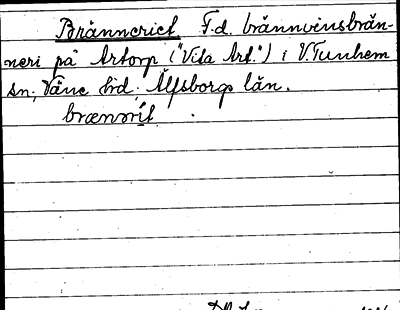 Bränneriet F.d. brännvinsbrän-
neri på Artorp ("Vita Art.") i V. Tunhem
sn, Väne hd, Älfsborgs län.
brænərít